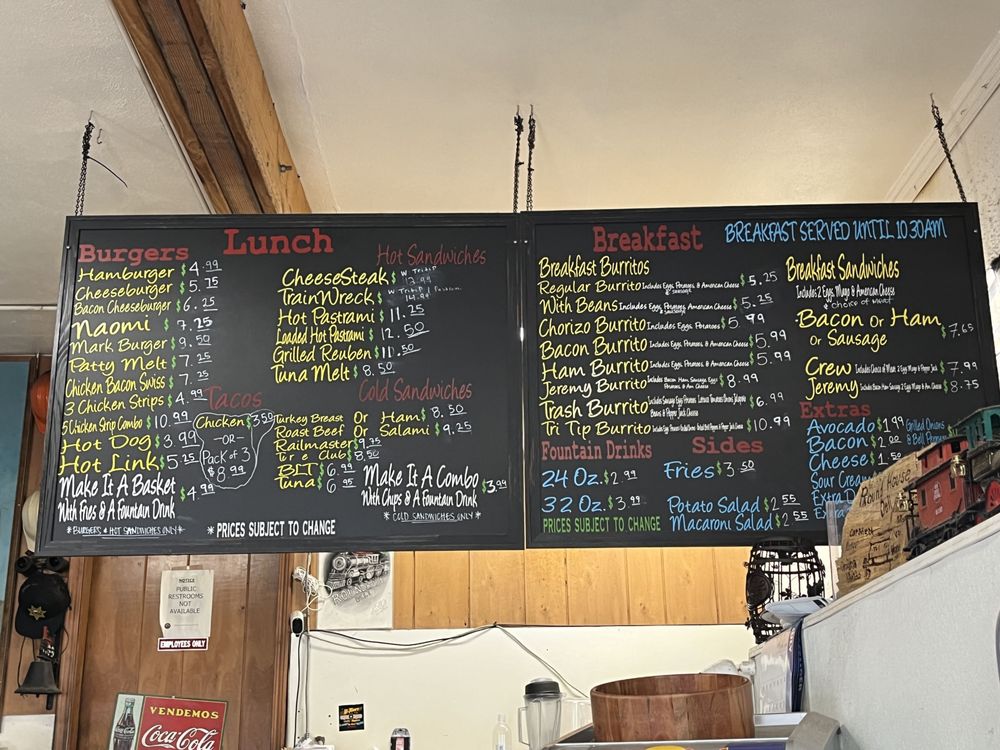 Lunch
Burgers
Hamburger $4.99
Cheeseburger $5.75
Bacon Cheeseburger $6.25
Naomi $7.25
Mark Burger $9.50
Patty Melt $7.25
Chicken Bacon Swiss $7.25
3 Chicken Strips $4.99
5 Chicken Strip Combo $10.99
Hot Dog $3.99
Hot Link $5.25
Make It A Basket $4.99
With Fries & A Fountain Drink
*BURGERS & HOT SANDWICHES ONLY*
Tacos
Chicken $3.50
-OR-
Pack of 3
$8.99
Hot Sandwiches
CheeseSteak $
TrainWreck $
Hot Pastrami $11.25
Loaded Hot Pastrami $12.50
Grilled Reuben $11.50
Tuna Melt $8.50
Cold Sandwiches
Turkey Breast Or Ham $8.50
Roast Beef Or Salami $9.25
Railmaster $9.35
Club $8.50
BLT $6.99
Tuna $6.95
Make It A Combo $3.99
With Chips & A Fountain Drink
*COLD SANDWICHES ONLY*
*PRICES SUBJECT TO CHANGE
Breakfast
BREAKFAST SERVED UNTIL 10:30AM
Breakfast Burritos
Regular Burrito Includes Eggs, Potatoes, & American Cheese $5.25
With Beans Includes Eggs, Potatoes, American Cheese $5.25
Chorizo Burrito Includes Eggs, Potatoes $5.99
Bacon Burrito Includes Eggs, Potatoes, & American Cheese $5.99
Ham Burrito Includes Eggs, Potatoes, & American Cheese $5.99
Jeremy Burrito $8.99
Trash Burrito $6.99
Tri Tip Burrito $10.99
Breakfast Sandwiches
Includes 2 Eggs, Mayo & American Cheese
& Choice of Meat
Bacon Or Ham
Or Sausage $7.65
Crew $7.99
Jeremy $8.75
Extras
Avocado $1.99
Bacon $2.00
Cheese $1.50
Sour Cream
Extra
Grilled Onions
& Bell Peppers
Fountain Drinks
24 Oz. $2.99
32 Oz. $3.99
PRICES SUBJECT TO CHANGE
Sides
Fries $3.50
Potato Salad $2.55
Macaroni Salad $2.55
NOTICE
PUBLIC
RESTROOMS
NOT
AVAILABLE
EMPLOYEES ONLY
VENDEMOS
Coca-Cola